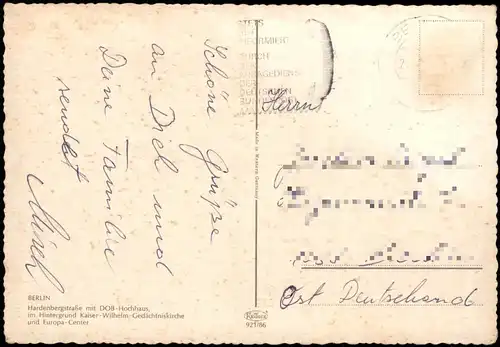 Schöne Grüße
an Dich und
Deine Familie
sendet
BERLIN
Hardenbergstraße mit DOB-Hochhaus,
im Hintergrund Kaiser-Wilhelm-Gedächtniskirche
und Europa-Center
Made in Western Germany
Krüger
921/66
STETS
INFORMIERT
DURCH
DER
DEUTSCHEN
Herrn
Ost Deutschand